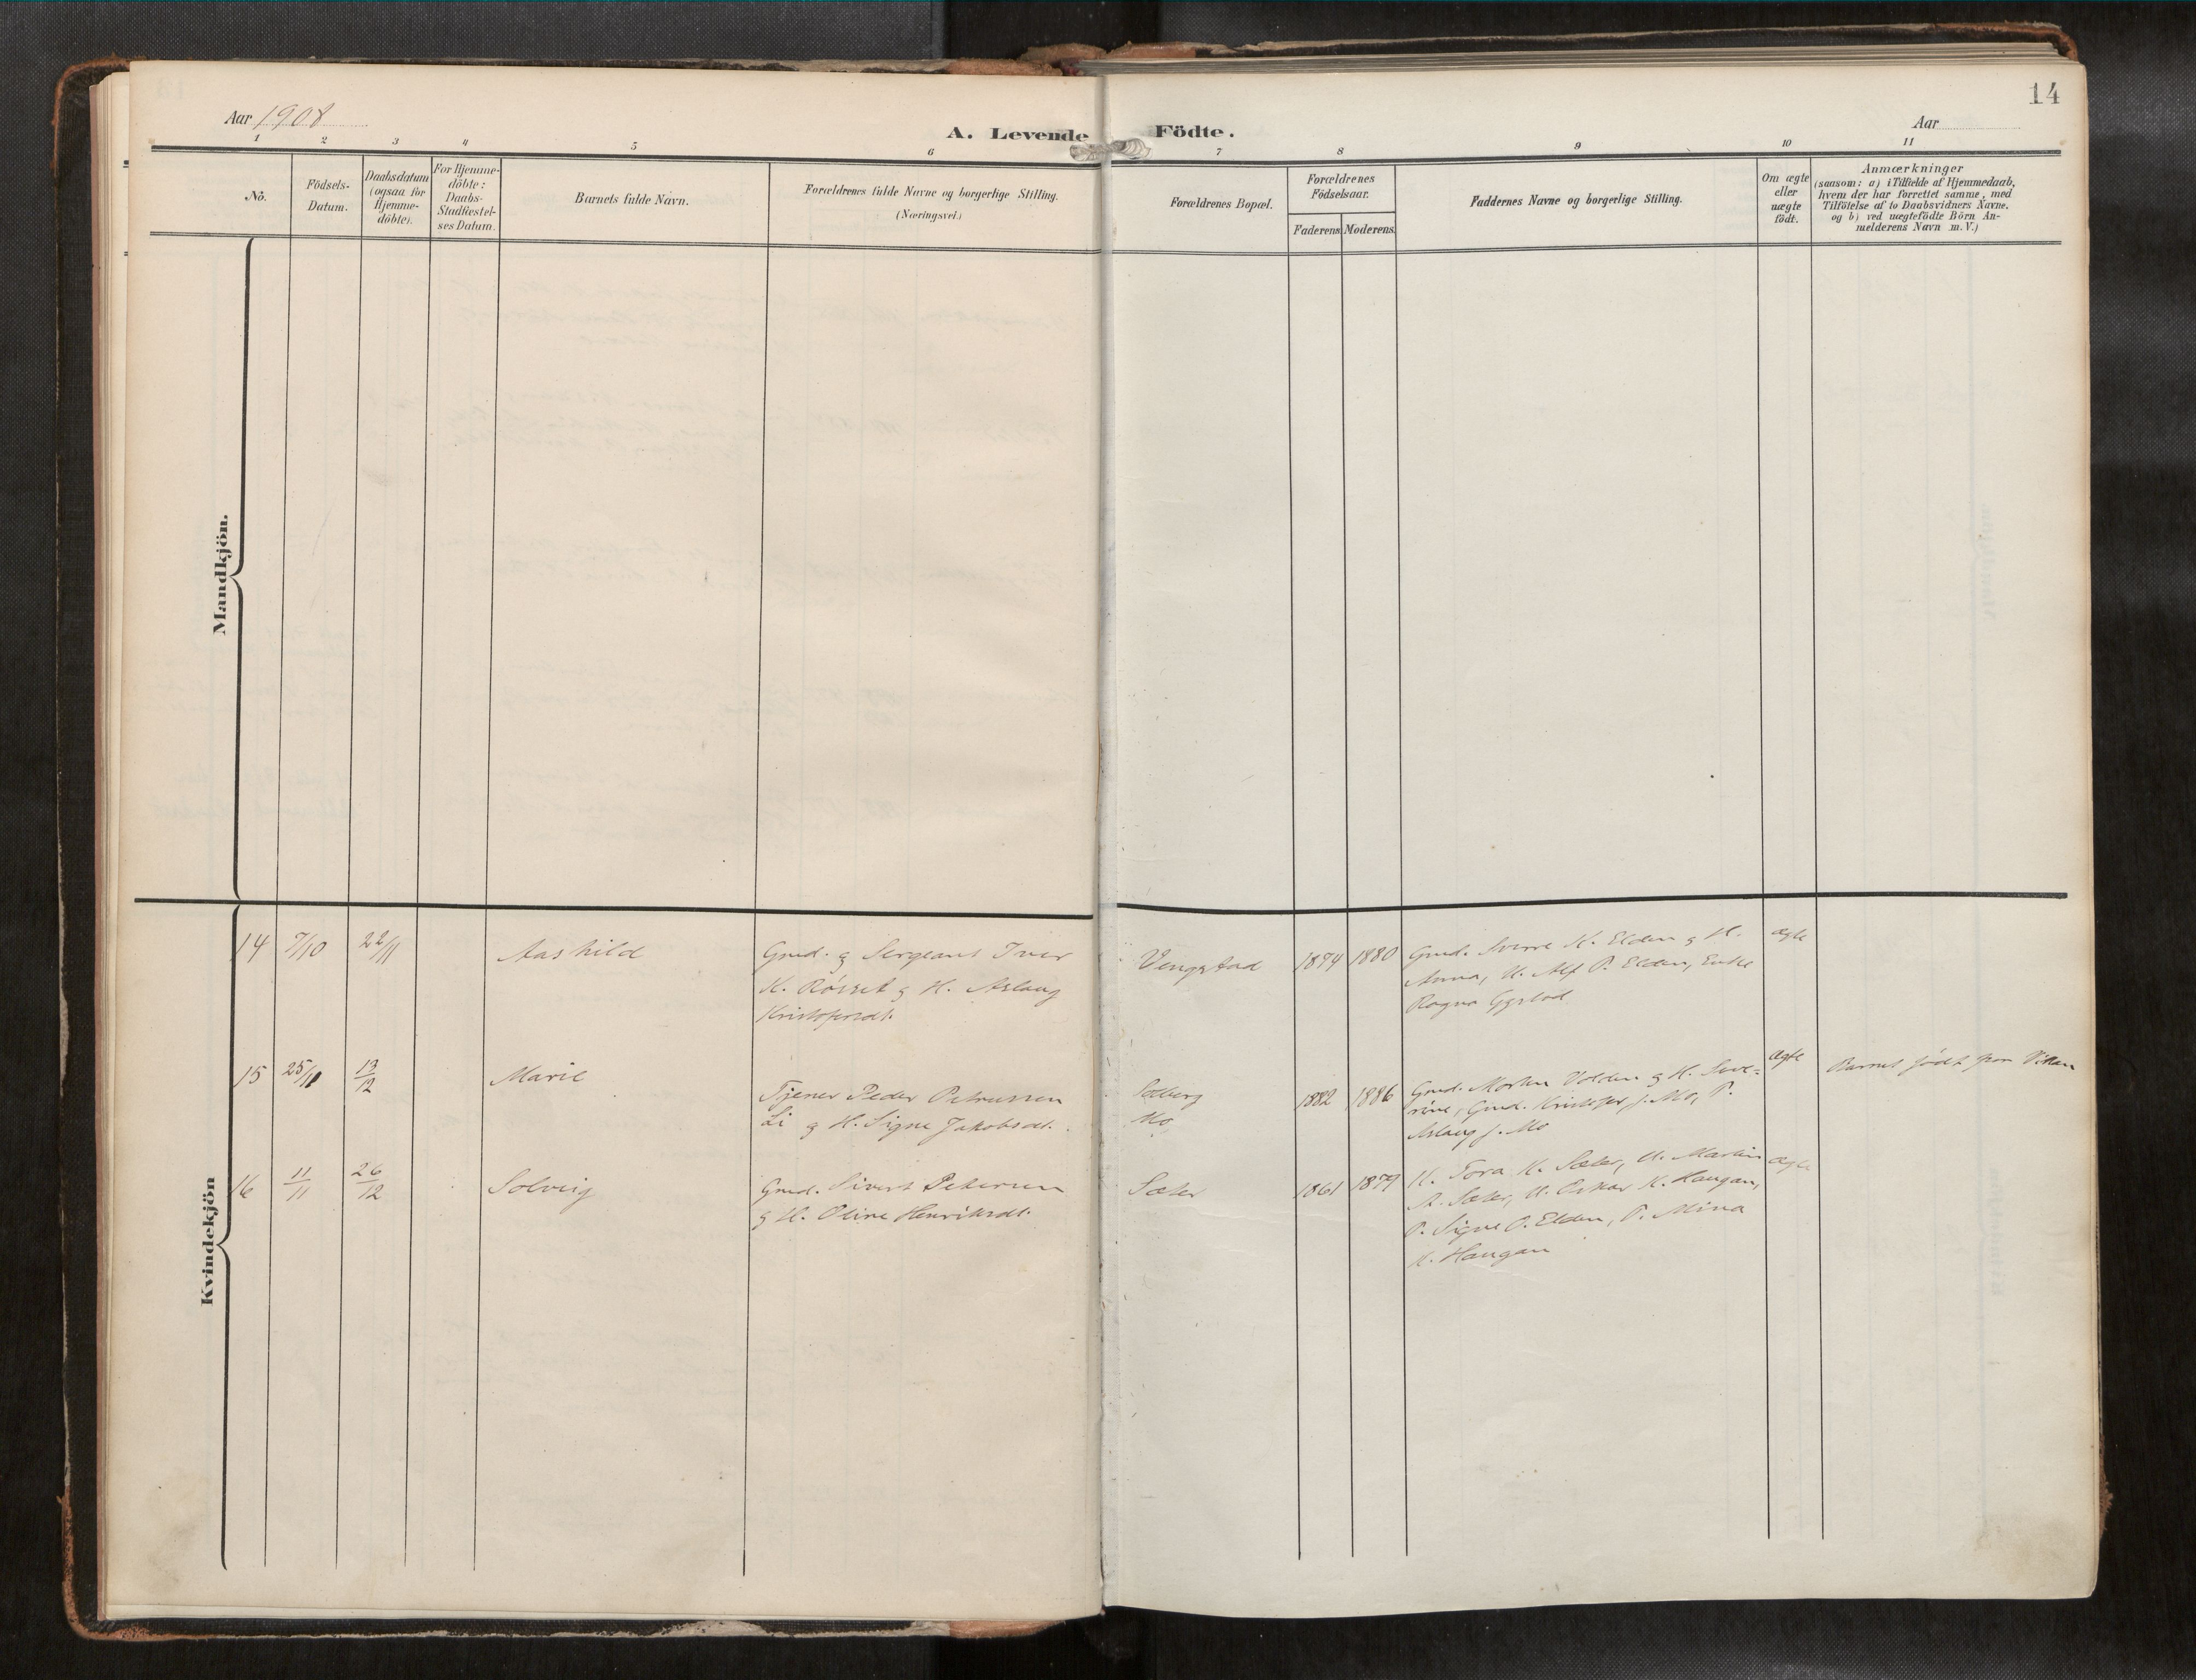 14
Aar 1908
A. Levende Födte.
Aar
1 2 3 4 5 6 7 8 9 10 11
No.
Födsels-
Datum.
Daabsdatum
(ogsaa for
Hjemme-
döbte).
For Hjemme-
döbte:
Daabs-
Stadfæstel-
ses Datum.
Barnets fulde Navn.
Forældrenes fulde Navne og borgerlige Stilling.
(Næringsvei.)
Forældrenes Bopæl.
Forældrenes
Födselsaar.
Faderens. Moderens.
Faddernes Navne og borgerlige Stilling.
Om ægte
eller
uægte
födt.
Anmærkninger
(saasom: a) i Tilfælde af Hjemmedaab,
hvem der har forrettet samme, med
Tilföielse af to Daabsvidners Navne,
og b) ved uægtefödte Börn An-
melderens Navn m. V.)
Mandkjön.
Kvindekjön
14 7/10 22/11 Aashild
Gmd. og Sergeant Iver
K. Rösset og H. Aslaug
Kristofersdt.
Vengstad 1874 1880
Gmd. Sverre K. Elden og H.
Anna, U. Alf P. Elden, Enke
Ragna
ægte
15 25/10 13/12 Marie
Tjener Peder Petrussen
Li og H. Signe Jakobsdt.
Solberg
Mo
1882 1886
Gmd. Morten Volden og H. Seve=
rine, Gmd. Kristofer J. Mo, P.
Aslaug J. Mo
ægte
Barnet födt paa Vikan
16 11/11 26/12 Solveig
Gmd. Sivert Petersen
og H. Oline Henriksdt.
Sæter 1861 1879
K. Tora K. Sæter, U. Martin
A. Sæter, U. Oskar K. Haugan,
P. Signe O. Elden, P. Mina
K. Haugan
ægte